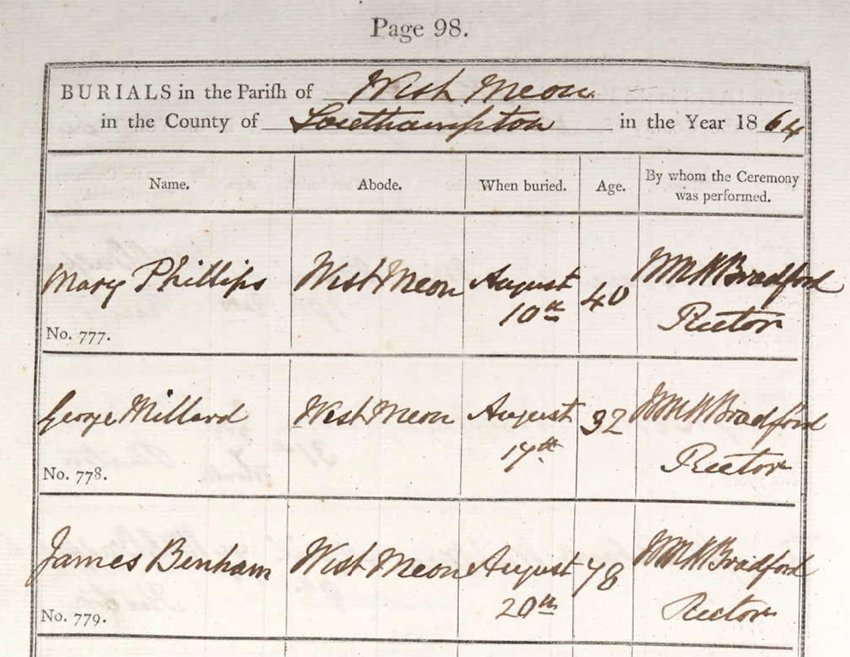 Page 98.
BURIALS in the Parish of West Meon
in the County of Southampton in the Year 1864
Name. Abode. When buried. Age. By whom the Ceremony was performed.
Mary Phillips West Meon August 10th 40 Wm W Bradford Rector
No. 777.
George Millard West Meon August 17th 92 Wm W Bradford Rector
No. 778.
James Benham West Meon August 20th 78 Wm W Bradford Rector
No. 779.